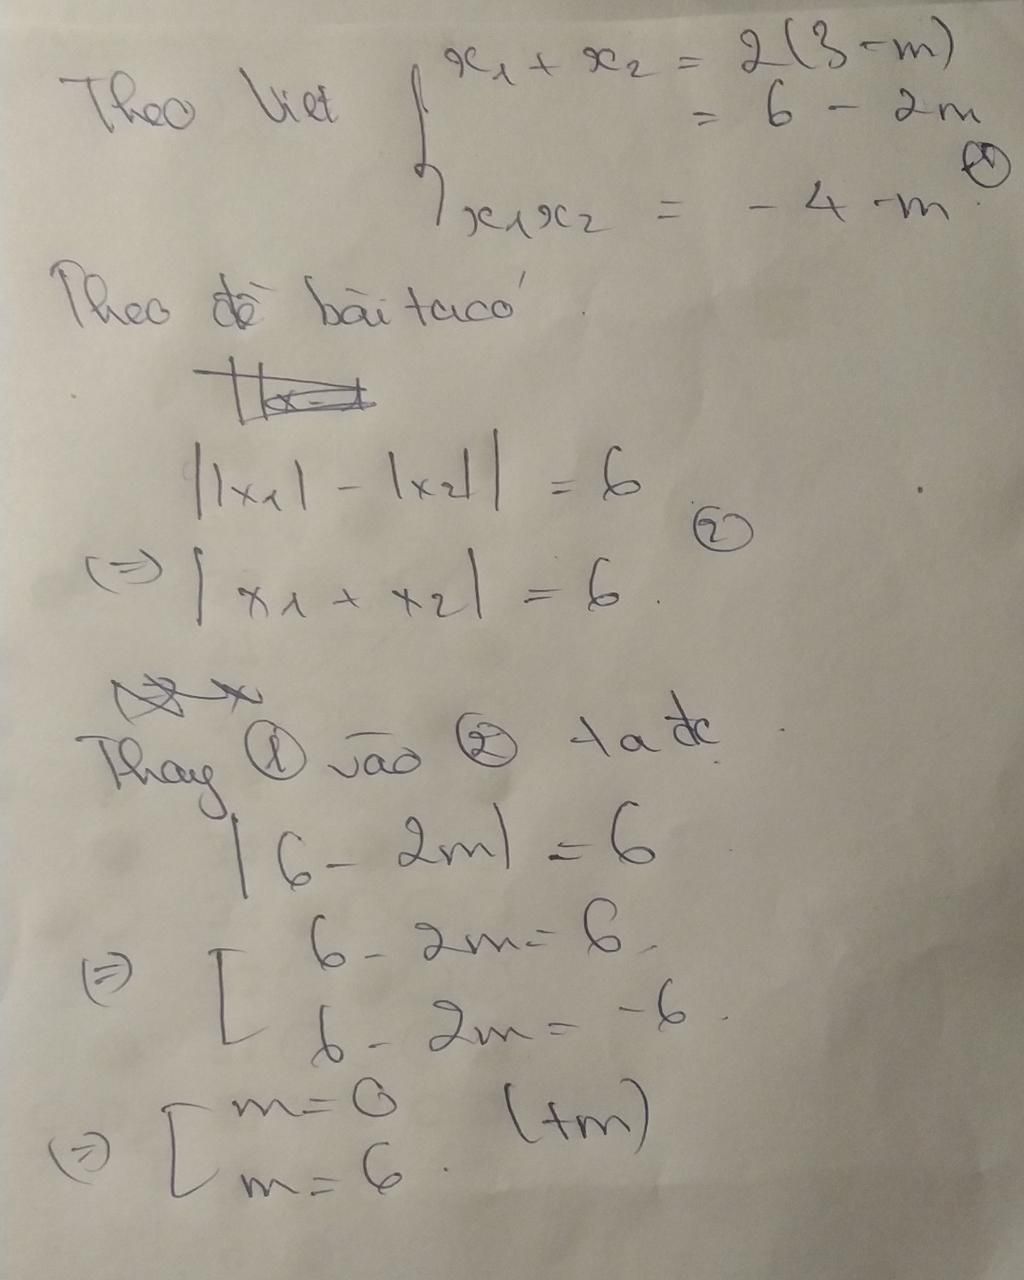 Theo Viet { x1 + x2 = 2(3 - m)
= 6 - 2m
x1x2 = - 4 - m. ①
Theo đề bài ta có.
||x1| - |x2|| = 6
(=) |x1 + x2| = 6. ②
Thay ① vào ② ta đc.
|6 - 2m| = 6
(=) [ 6 - 2m = 6.
6 - 2m = -6.
(=) [ m = 0 (tm)
m = 6.